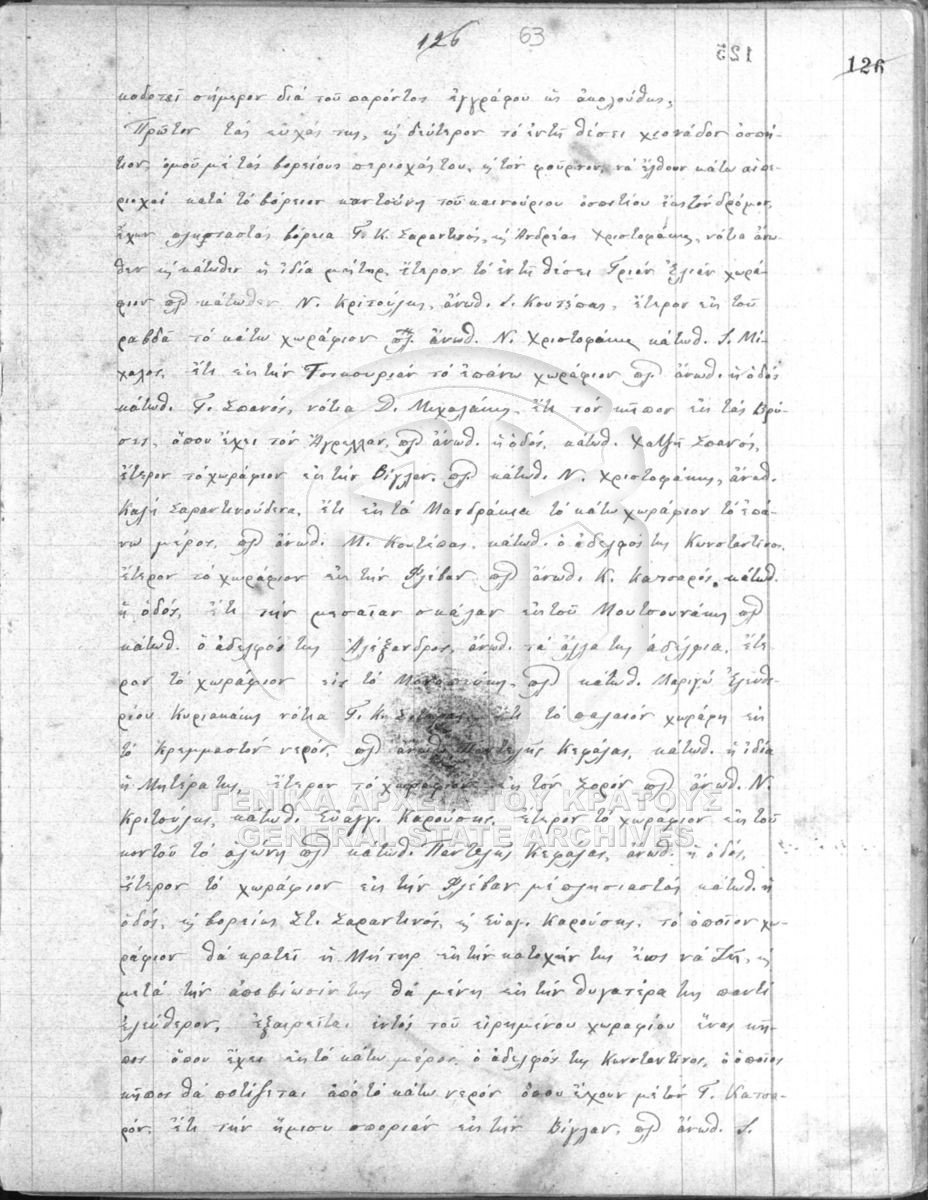 126 63 125 126
κοδοτεῖ σήμερον διά τοῦ παρόντος ἐγγράφου ὡς ἀκολούθως,
Πρῶτον τάς εὐχάς της, κ δεύτερον τό ἐν τῇ θέσει χιονάδος ὀσπή-
τιον, ὁμοῦ μέ τάς βορείους περιοχάς του, κ τόν φοῦρνον, νά ἔλθουν κάτω αἱ πε-
ριοχαί κατά τό βόρειον καντοῦνη τοῦ καινούριου ὀσπιτίου ἕως τόν δρόμον,
ἔχων πλησιαστάς βόρεια Γ. Κ. Σαραντινός, κ Ἀνδρέας Χριστοφάκης, νότια ἄνω-
θεν κ κάτωθεν ἡ ἰδία μήτηρ, ἕτερον τό ἐν τῇ θέσει Γριάν Ἐλιάν χωρά-
φιον πλ κάτωθεν Ν. Κριτούλης, ἄνωθ. Ι. Κουτέπας, ἕτερον εἰς τοῦ
ραβδᾶ τό κάτω χωράφιον πλ. ἄνωθ. Ν. Χριστοφάκης κάτωθ. Ι. Μί-
χαλος, ἔτι εἰς τήν τό ἐπάνω χωράφιον πλ ἄνωθ. ἡ ὁδός
κάτωθ. Γ. Σπανός, νότια Δ. Μιχαλάκης, ἔτι τόν κῆπον εἰς τάς Βρύ-
σες, ὅπου ἔχει τόν πλ ἄνωθ. ἡ ὁδός, κάτωθ. Χατζῆ Σπανός,
ἕτερον τό χωράφιον εἰς τήν Βίγλαν, πλ κάτωθ. Ν. Χριστοφάκης, ἄνωθ.
Καλή Σαραντινούδενα, ἔτι εἰς τά Μανδράκια τό κάτω χωράφιον τό ἐπά-
νω μέρος, πλ ἄνωθ. Μ. Κουτέπας, κάτωθ. ὁ ἀδελφός της Κωνσταντῖνος.
ἕτερον τό χωράφιον εἰς τήν Φλέβαν πλ ἄνωθ. Κ. Κατσαρός, κάτωθ.
ἡ ὁδός, ἔτι τήν μεσαῖαν σκάλαν εἰς τοῦ Μουτσουνάκη πλ
κάτωθ. ὁ ἀδελφός της Ἀλέξανδρος, ἄνωθ. τά ἄλλα της ἀδέλφια, ἕτε-
ρον τό χωράφιον εἰς τό πλ κάτωθ. Μαριγώ Ἐλευθε-
ρίου Κυριακάκης νότια Γ. ἔτι τό παλαιόν χωράφι εἰς
τό Κρεμμαστόν νερόν, πλ ἄνωθ Παντελῆς Κεφάλας, κάτωθ. ἡ ἰδία
ἡ Μητέρα της, ἕτερον τό χωράφιον εἰς τόν Σορόν πλ ἄνωθ. Ν.
Κριτούλης, κάτωθ. Εὐαγγ. Καρούσης, ἕτερον τό χωράφιον εἰς τοῦ
κοντοῦ τό ἁλώνη πλ κάτωθ. Παντελῆς Κεφάλας, ἄνωθ. ἡ ὁδός,
ἕτερον τό χωράφιον εἰς τήν Φλέβαν μέ πλησιαστάς κάτωθ. ἡ
ὁδός, κ βορείως Στ. Σαραντινός, κ Εὐαγ. Καρούσης, τό ὁποῖον χω-
ράφιον θά κρατεῖ ἡ Μήτηρ εἰς τήν κατοχήν της ἕως νά ζῇ, κ
μετά τήν ἀποβίωσίν της θά μένη εἰς τήν θυγατέρα της παντί
ἐλεύθερον, ἐξαιρεῖται ἐντός τοῦ εἰρημένου χωραφίου ἕνας κῆ-
πος ὅπου ἔχει εἰς τό κάτω μέρος ὁ ἀδελφός της Κωνσταντῖνος, ὁ ὁποῖος
κῆπος θά ποτίζεται ἀπό τό κάτω νερόν ὅπου ἔχουν μέ τόν Γ. Κατσα-
ρόν. ἔτι τήν ἥμισυ σποριάν εἰς τήν Βίγλαν, πλ ἄνωθ. Ι.
ΓΕΝΙΚΑ ΑΡΧΕΙΑ ΤΟΥ ΚΡΑΤΟΥΣ
GENERAL STATE ARCHIVES